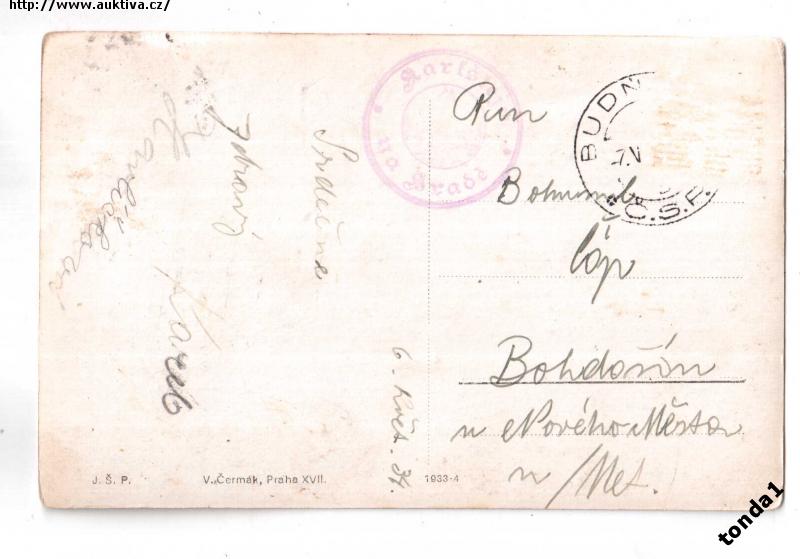 http://www.auktiva.cz/
Karlš
na Hradě
BUDN
7.V
Č.S.P.
Pan
Bohumil
Čáp
Bohdašín
u Nového Města
n/Met.
Srdečně
zdraví
Karel
6. Květ. 34.
J. Š. P.
V. Čermák, Praha XVII.
1933-4
tonda1